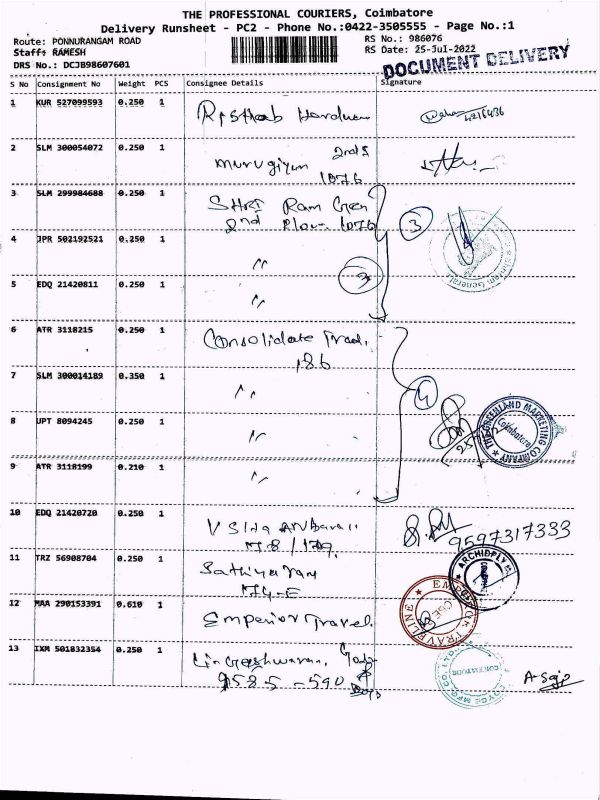 THE PROFESSIONAL COURIERS, Coimbatore
Delivery Runsheet - PC2 - Phone No.:0422-3505555 - Page No.:1
Route: PONNURANGAM ROAD
RS No.: 986076
Staff: RAMESH
RS Date: 25-Jul-2022
DRS No.: DCJB98607601
DOCUMENT DELIVERY
S No Consignment No Weight PCS Consignee Details Signature
1 KUR 527099593 0.250 1
2 SLM 300054072 0.250 1 2nd
1076
3 SLM 299984688 0.250 1 SHRI Ram Gen
2nd Floor 1076
3
4 JPR 502192521 0.250 1 "
3
5 EDQ 21420811 0.250 1 "
6 ATR 3118215 0.250 1 Consolidate Trad.
186
7 SLM 300014189 0.350 1 "
4
8 UPT 8094245 0.250 1 "
THE GREENLAND MARKETING COMPANY
Coimbatore
9 ATR 3118199 0.210 1 "
10 EDQ 21420720 0.250 1
9597317333
11 TRZ 56908704 0.250 1 Sathiyaram
74-E
12 MAA 290153391 0.610 1 Emperior Travel.
13 IXM 501832354 0.250 1 Lingeshwaran,
9585-590